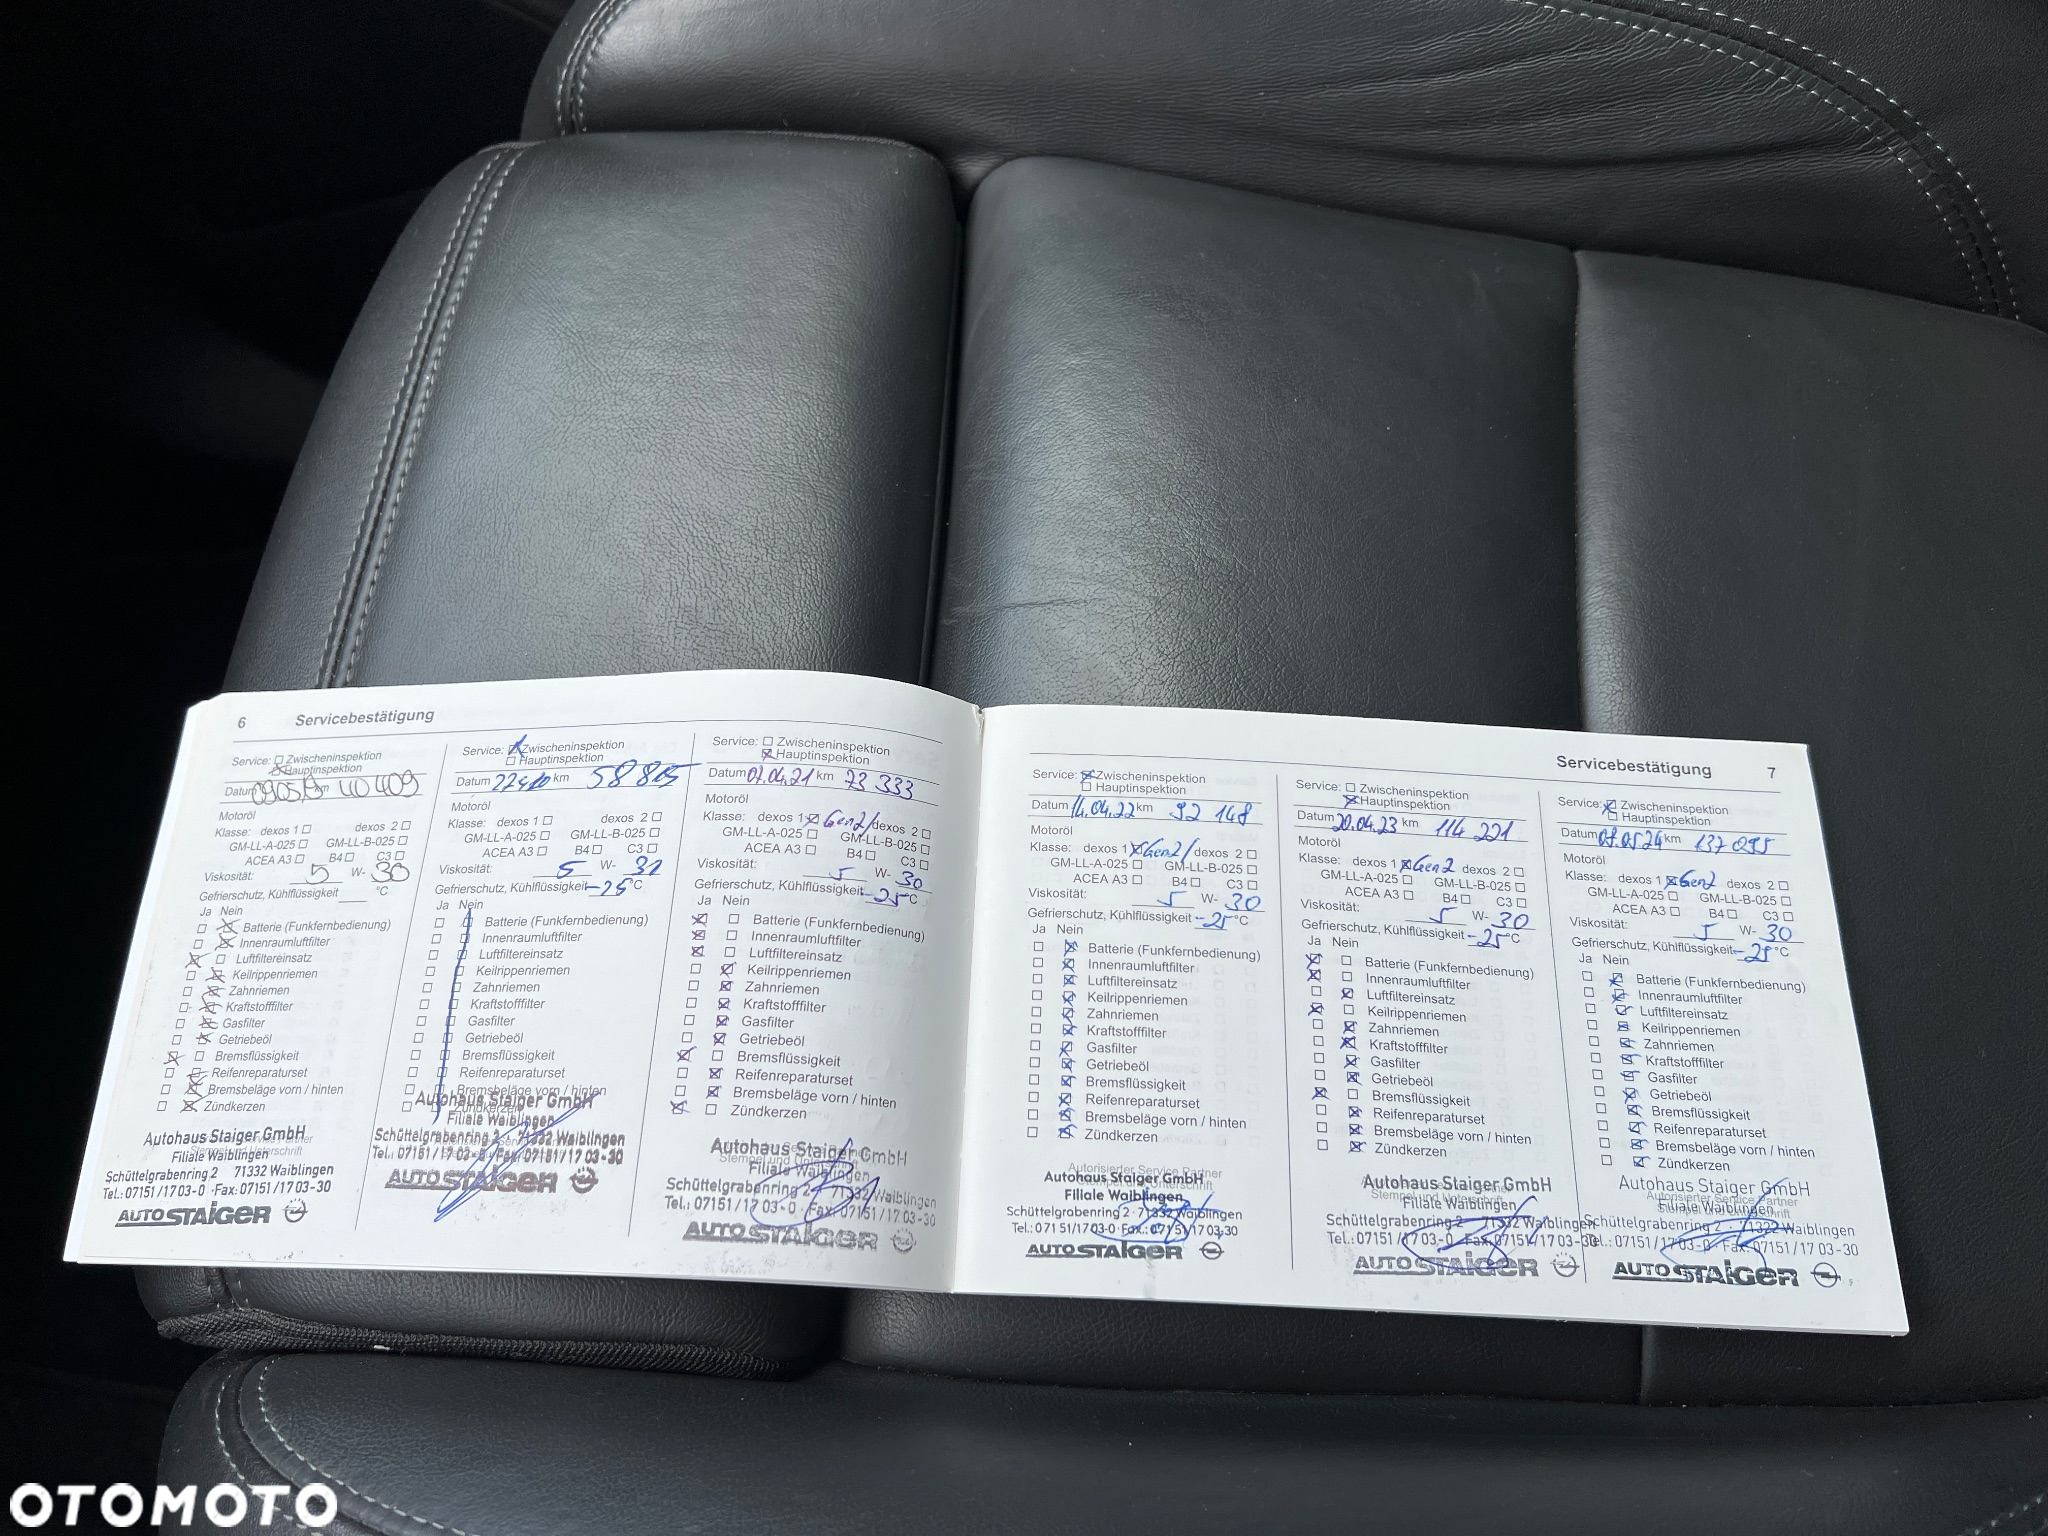 6 Servicebestätigung
Service: Zwischeninspektion
Hauptinspektion
Datum km 40 409
Motoröl
Klasse: dexos 1 dexos 2
GM-LL-A-025 GM-LL-B-025
ACEA A3 B4 C3
Viskosität: 5 W- 30
Gefrierschutz, Kühlflüssigkeit °C
Ja Nein
Batterie (Funkfernbedienung)
Innenraumluftfilter
Luftfiltereinsatz
Keilrippenriemen
Zahnriemen
Kraftstofffilter
Gasfilter
Getriebeöl
Bremsflüssigkeit
Reifenreparaturset
Bremsbeläge vorn / hinten
Zündkerzen
Autohaus Staiger GmbH
Filiale Waiblingen
Schüttelgrabenring 2 71332 Waiblingen
Tel.: 07151/17 03-0 · Fax: 07151/17 03-30
AUTO STAIGER
Service: Zwischeninspektion
Hauptinspektion
Datum km 58 805
Motoröl
Klasse: dexos 1 dexos 2
GM-LL-A-025 GM-LL-B-025
ACEA A3 B4 C3
Viskosität: 5 W-
Gefrierschutz, Kühlflüssigkeit -25 °C
Ja Nein
Batterie (Funkfernbedienung)
Innenraumluftfilter
Luftfiltereinsatz
Keilrippenriemen
Zahnriemen
Kraftstofffilter
Gasfilter
Getriebeöl
Bremsflüssigkeit
Reifenreparaturset
Bremsbeläge vorn / hinten
Zündkerzen
Autohaus Staiger GmbH
Filiale Waiblingen
Schüttelgrabenring 2 · 71332 Waiblingen
Tel.: 07151/17 03-0 · Fax: 07151/17 03-30
AUTO STAIGER
Service: Zwischeninspektion
Hauptinspektion
Datum 07.04.21 km 73 333
Motoröl
Klasse: dexos 1 Gen2/ dexos 2
GM-LL-A-025 GM-LL-B-025
ACEA A3 B4 C3
Viskosität: 5 W- 30
Gefrierschutz, Kühlflüssigkeit -25 °C
Ja Nein
Batterie (Funkfernbedienung)
Innenraumluftfilter
Luftfiltereinsatz
Keilrippenriemen
Zahnriemen
Kraftstofffilter
Gasfilter
Getriebeöl
Bremsflüssigkeit
Reifenreparaturset
Bremsbeläge vorn / hinten
Zündkerzen
Autohaus Staiger GmbH
Stempel und Unterschrift
Filiale Waiblingen
Schüttelgrabenring 2 · 71332 Waiblingen
Tel.: 07151/17 03-0 · Fax: 07151/17 03-30
AUTO STAIGER
Servicebestätigung 7
Service: Zwischeninspektion
Hauptinspektion
Datum 14.04.22 km 92 148
Motoröl
Klasse: dexos 1 Gen2/ dexos 2
GM-LL-A-025 GM-LL-B-025
ACEA A3 B4 C3
Viskosität: 5 W- 30
Gefrierschutz, Kühlflüssigkeit -25 °C
Ja Nein
Batterie (Funkfernbedienung)
Innenraumluftfilter
Luftfiltereinsatz
Keilrippenriemen
Zahnriemen
Kraftstofffilter
Gasfilter
Getriebeöl
Bremsflüssigkeit
Reifenreparaturset
Bremsbeläge vorn / hinten
Zündkerzen
Autorisierter Service Partner
Autohaus Staiger GmbH
Filiale Waiblingen
Schüttelgrabenring 2 · 71332 Waiblingen
Tel.: 07151/1703-0 · Fax.: 07151/1703-30
AUTO STAIGER
Service: Zwischeninspektion
Hauptinspektion
Datum 20.04.23 km 114 221
Motoröl
Klasse: dexos 1 Gen2 dexos 2
GM-LL-A-025 GM-LL-B-025
ACEA A3 B4 C3
Viskosität: 5 W- 30
Gefrierschutz, Kühlflüssigkeit -25 °C
Ja Nein
Batterie (Funkfernbedienung)
Innenraumluftfilter
Luftfiltereinsatz
Keilrippenriemen
Zahnriemen
Kraftstofffilter
Gasfilter
Getriebeöl
Bremsflüssigkeit
Reifenreparaturset
Bremsbeläge vorn / hinten
Zündkerzen
Autohaus Staiger GmbH
Stempel und Unterschrift
Filiale Waiblingen
Schüttelgrabenring 2 71332 Waiblingen
Tel.: 07151/17 03-0 · Fax: 07151/17 03-30
AUTO STAIGER
Service: Zwischeninspektion
Hauptinspektion
Datum 07.05.24 km 137 095
Motoröl
Klasse: dexos 1 Gen2 dexos 2
GM-LL-A-025 GM-LL-B-025
ACEA A3 B4 C3
Viskosität: 5 W- 30
Gefrierschutz, Kühlflüssigkeit -25 °C
Ja Nein
Batterie (Funkfernbedienung)
Innenraumluftfilter
Luftfiltereinsatz
Keilrippenriemen
Zahnriemen
Kraftstofffilter
Gasfilter
Getriebeöl
Bremsflüssigkeit
Reifenreparaturset
Bremsbeläge vorn / hinten
Zündkerzen
Autohaus Staiger GmbH
Autorisierter Service Partner
Filiale Waiblingen
Schüttelgrabenring 2 · 71332 Waiblingen
Tel.: 07151/17 03-0 · Fax: 07151/17 03-30
AUTO STAIGER
OTOMOTO